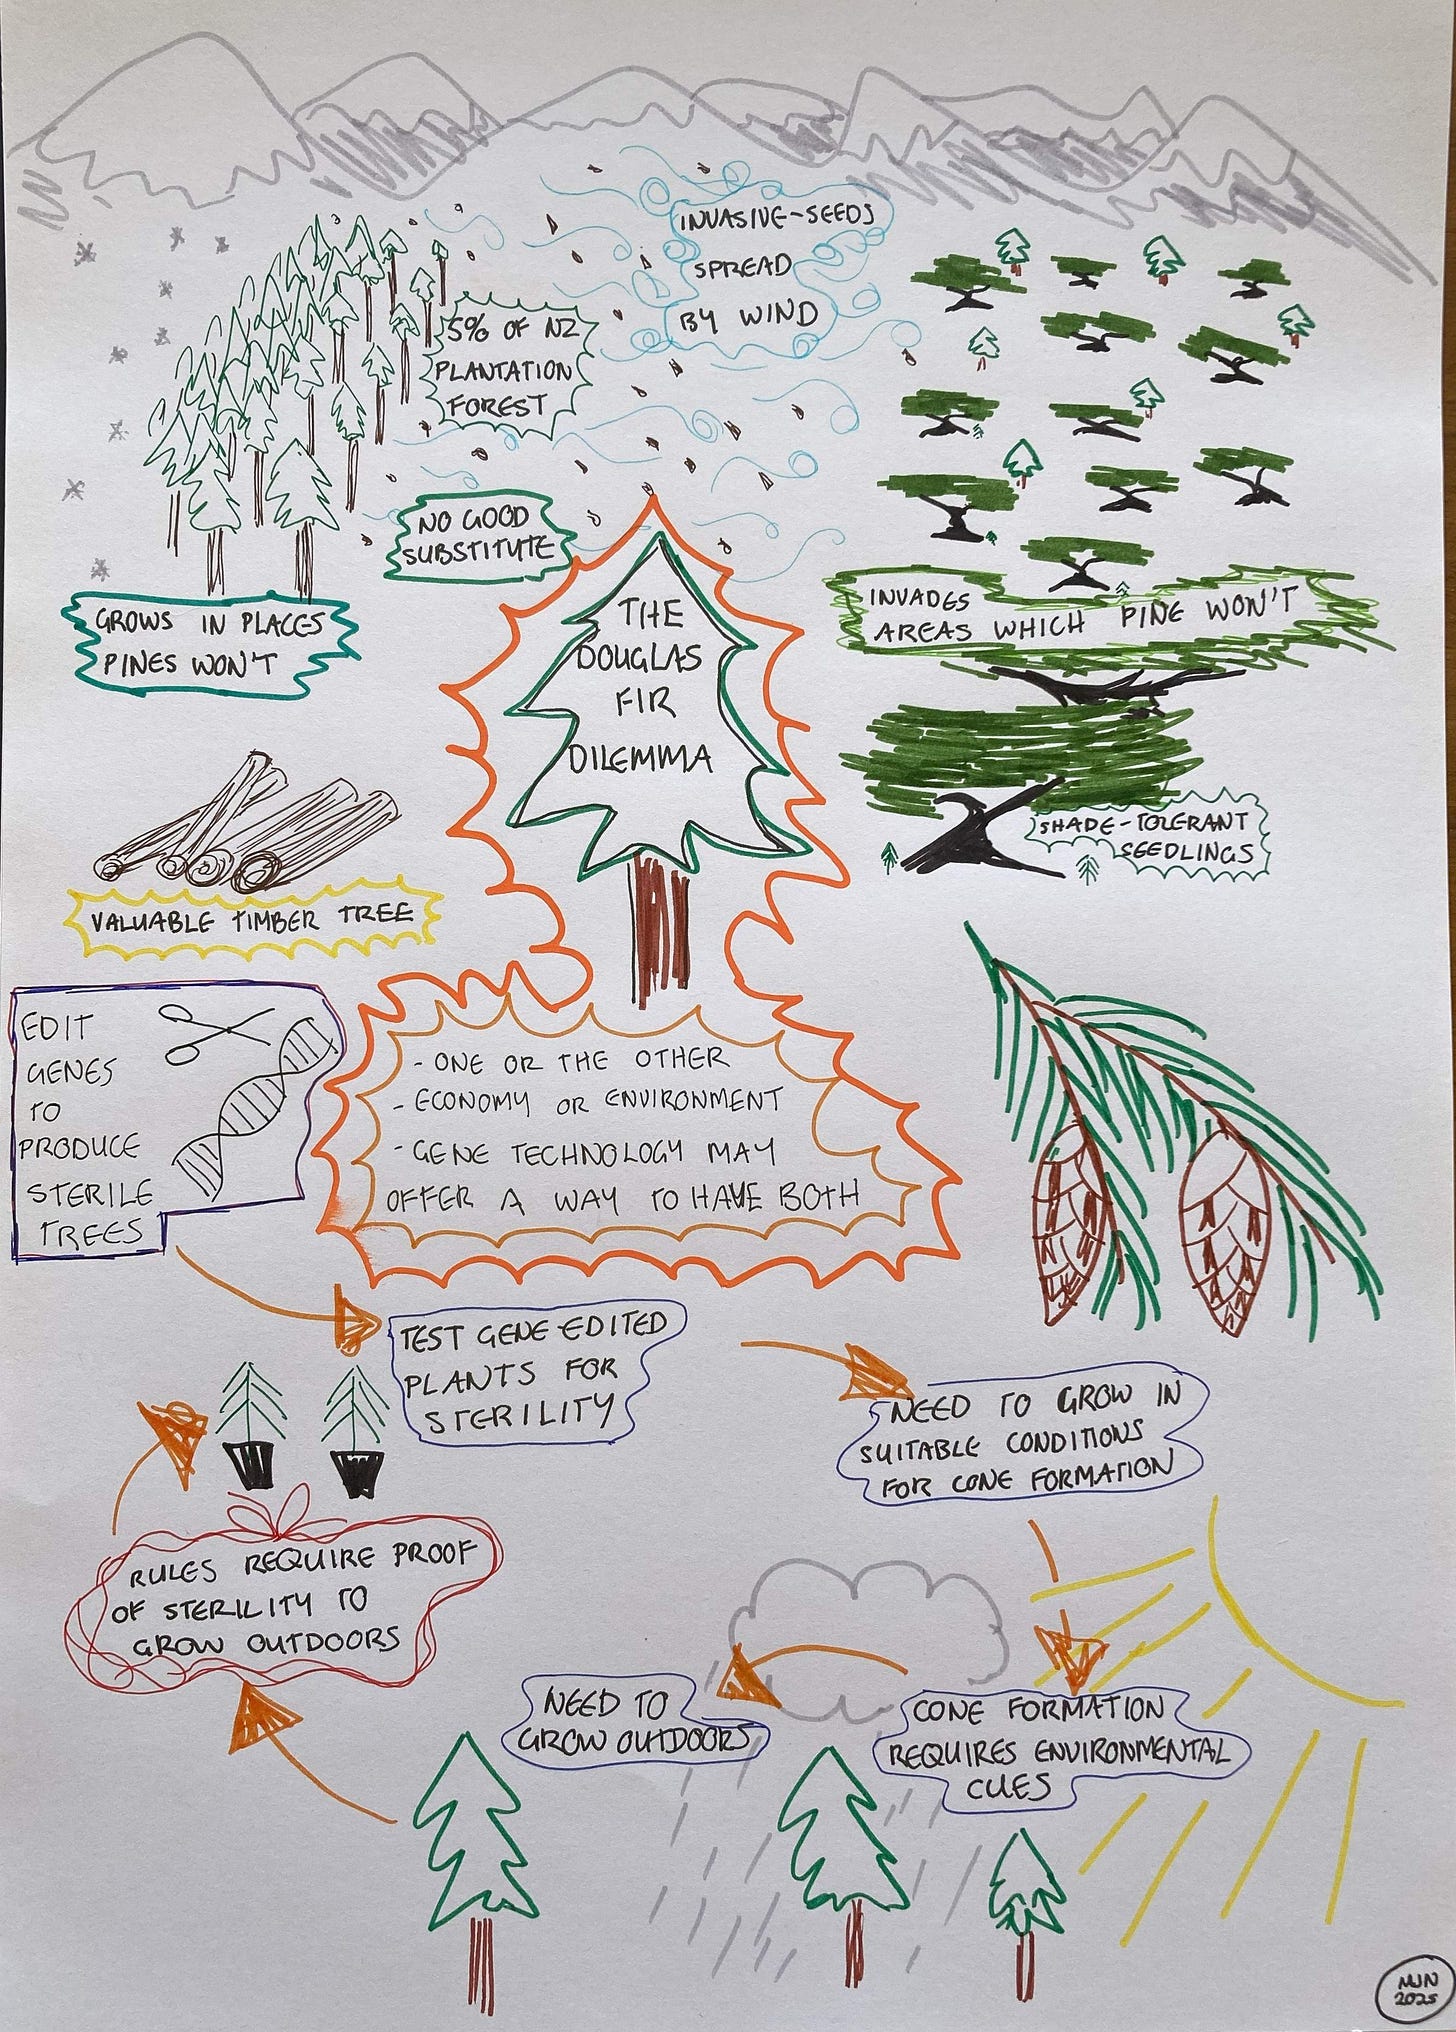 INVASIVE-SEEDS
SPREAD
BY WIND
5% OF NZ
PLANTATION
FOREST
NO GOOD
SUBSTITUTE
GROWS IN PLACES
PINES WON'T
THE
DOUGLAS
FIR
DILEMMA
INVADES
AREAS WHICH PINE WON'T
SHADE-TOLERANT
SEEDLINGS
VALUABLE TIMBER TREE
EDIT
GENES
TO
PRODUCE
STERILE
TREES
- ONE OR THE OTHER
- ECONOMY OR ENVIRONMENT
- GENE TECHNOLOGY MAY
OFFER A WAY TO HAVE BOTH
TEST GENE-EDITED
PLANTS FOR
STERILITY
NEED TO GROW IN
SUITABLE CONDITIONS
FOR CONE FORMATION
RULES REQUIRE PROOF
OF STERILITY TO
GROW OUTDOORS
NEED TO
GROW OUTDOORS
CONE FORMATION
REQUIRES ENVIRONMENTAL
CUES
MJN
2025